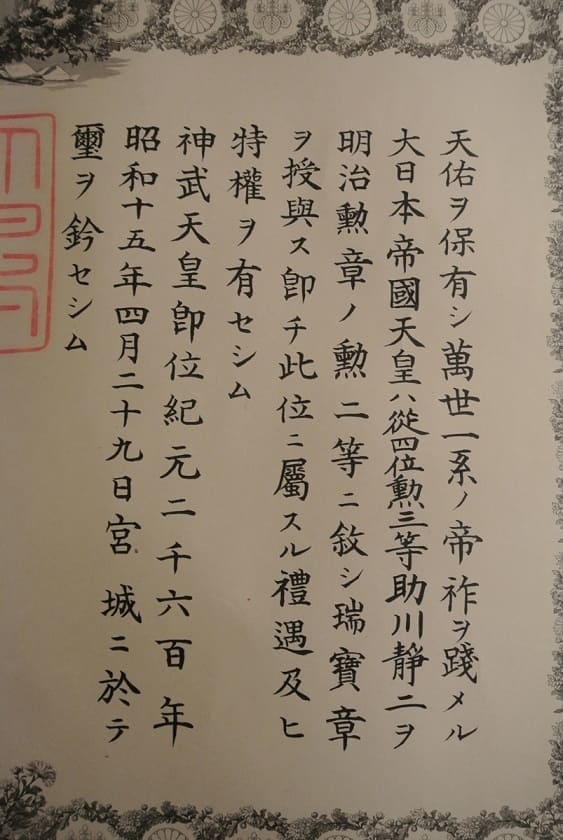 天佑ヲ保有シ萬世一系ノ帝祚ヲ踐メル
大日本帝國天皇ハ從四位勲三等助川靜二ヲ
明治勲章ノ勲二等ニ敘シ瑞寶章
ヲ授與ス卽チ此位ニ屬スル禮遇及ヒ
特權ヲ有セシム
神武天皇卽位紀元二千六百年
昭和十五年四月二十九日宮城ニ於テ
璽ヲ鈐セシム